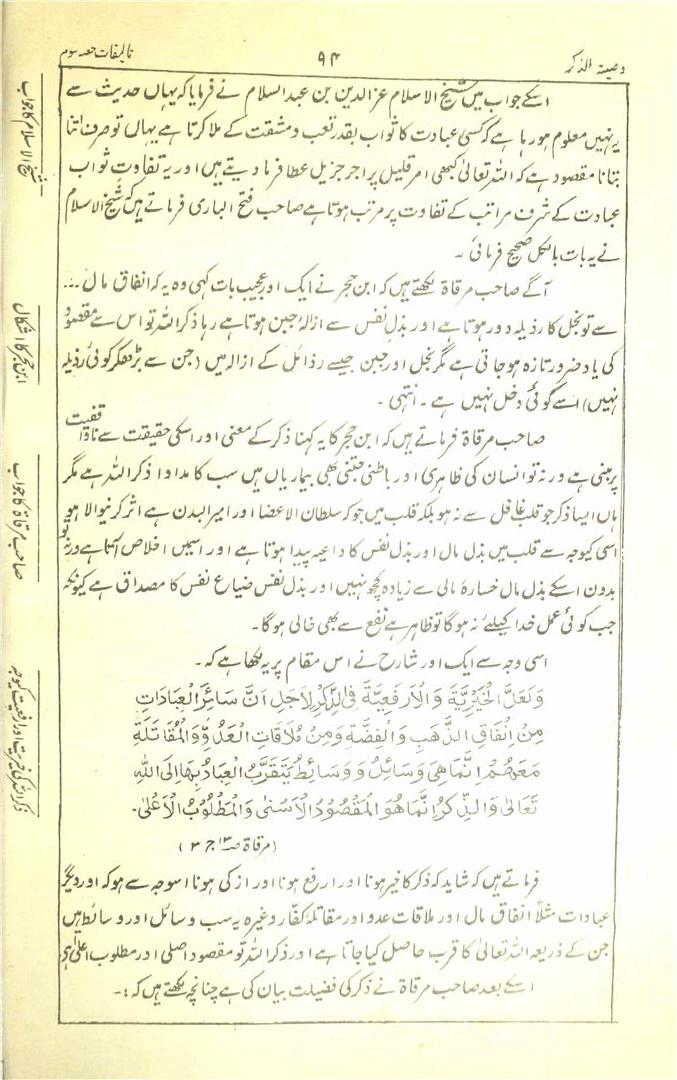 وصیۃ الذکر
۹۴
تالیفات حصہ سوم
اسکے جواب میں شیخ الاسلام عزالدین بن عبدالسلام نے فرمایا کہ یہاں حدیث سے
یہ نہیں معلوم ہو رہا ہے کہ کسی عبادت کا ثواب بقدر تعب و مشقت کے ملا کرتا ہے یہاں تو صرف اتنا
بتانا مقصود ہے کہ اللہ تعالیٰ کبھی امر قلیل پر اجر جزیل عطا فرما دیتے ہیں اور یہ تفاوت ثواب
عبادت کے شرف مراتب کے تفاوت پر مرتب ہوتا ہے صاحب فتح الباری فرماتے ہیں کہ شیخ الاسلام
نے یہ بات بالکل صحیح فرمائی ۔
آگے صاحب مرقاۃ لکھتے ہیں کہ ابن حجر نے ایک اور عجیب بات کہی وہ یہ کہ انفاق مال ...
سے تو بخل کا رذیلہ دور ہوتا ہے اور بذلِ نفس سے ازالۂ جبن ہوتا ہے رہا ذکر اللہ تو اس سے مقصود
کی یاد ضرور تازہ ہو جاتی ہے مگر بخل اور جبن جیسے رذائل کے ازالہ میں (جن سے بڑھکر کوئی رذیلہ
نہیں) اسے کوئی دخل نہیں ہے ۔ انتہی ۔
صاحب مرقاۃ فرماتے ہیں کہ ابن حجر کا یہ کہنا ذکر کے معنی اور اسکی حقیقت سے ناواقفیت
پر مبنی ہے ورنہ تو انسان کی ظاہری اور باطنی جتنی بھی بیماریاں ہیں سب کا مداوا ذکر اللہ ہے مگر
ہاں ایسا ذکر جو قلب غافل سے نہ ہو بلکہ قلب میں جو کہ سلطان الاعضا اور امیر البدن ہے اثر کرنیوالا ہو
اسی کیوجہ سے قلب میں بذل مال اور بذل نفس کا داعیہ پیدا ہوتا ہے اور اسمیں اخلاص آتا ہے ورنہ تو
بدون اسکے بذل مال خسارہ مالی سے زیادہ کچھ نہیں اور بذل نفس ضیاع نفس کا مصداق ہے کیونکہ
جب کوئی عمل خدا کیلئے نہ ہو گا تو ظاہر ہے نفع سے بھی خالی ہو گا۔
اسی وجہ سے ایک اور شارح نے اس مقام پر یہ لکھا ہے کہ ۔
وَلَعَلَّ الْخَيْرِيَّةَ وَالْاَرْفَعِيَّةَ فِي الذِّكْرِ لِاَجَلِ اَنَّ سَائِرَ الْعِبَادَاتِ
مِنْ اِنْفَاقِ الذَّهَبِ وَالْفِضَّةِ وَمِنْ مُلَاقَاتِ الْعَدُوِّ وَالْمُقَاتَلَةِ
مَعَهُمْ اِنَّمَا هِيَ وَسَائِلُ وَوَسَائِطُ يَتَقَرَّبُ الْعِبَادُ بِهَا اِلَى اللهِ
تَعَالىٰ وَالذِّكْرُ اِنَّمَا هُوَ الْمَقْصُوْدُ الْاَسْنٰى وَالْمَطْلُوْبُ الْاَعْلىٰ۔
(مرقاۃ ص۱۳ ج ۳)
فرماتے ہیں کہ شاید کہ ذکر کا خیر ہونا اور ارفع ہونا اور ازکی ہونا اسوجہ سے ہو کہ اور دیگر
عبادات مثلاً انفاق مال اور ملاقات عدو اور مقاتلۂ کفار وغیرہ یہ سب وسائل اور وسائط ہیں
جن کے ذریعہ اللہ تعالیٰ کا قرب حاصل کیا جاتا ہے اور ذکر اللہ تو مقصود اصلی اور مطلوب اعلیٰ ہی
اسکے بعد صاحب مرقاۃ نے ذکر کی فضیلت بیان کی ہے چنانچہ لکھتے ہیں کہ :۔
شیخ الاسلام کا جواب
ابن حجر کا اشکال
صاحب مرقاۃ کا جواب
ذکر اللہ کی خیریت اور ارفعیت کیوجہ